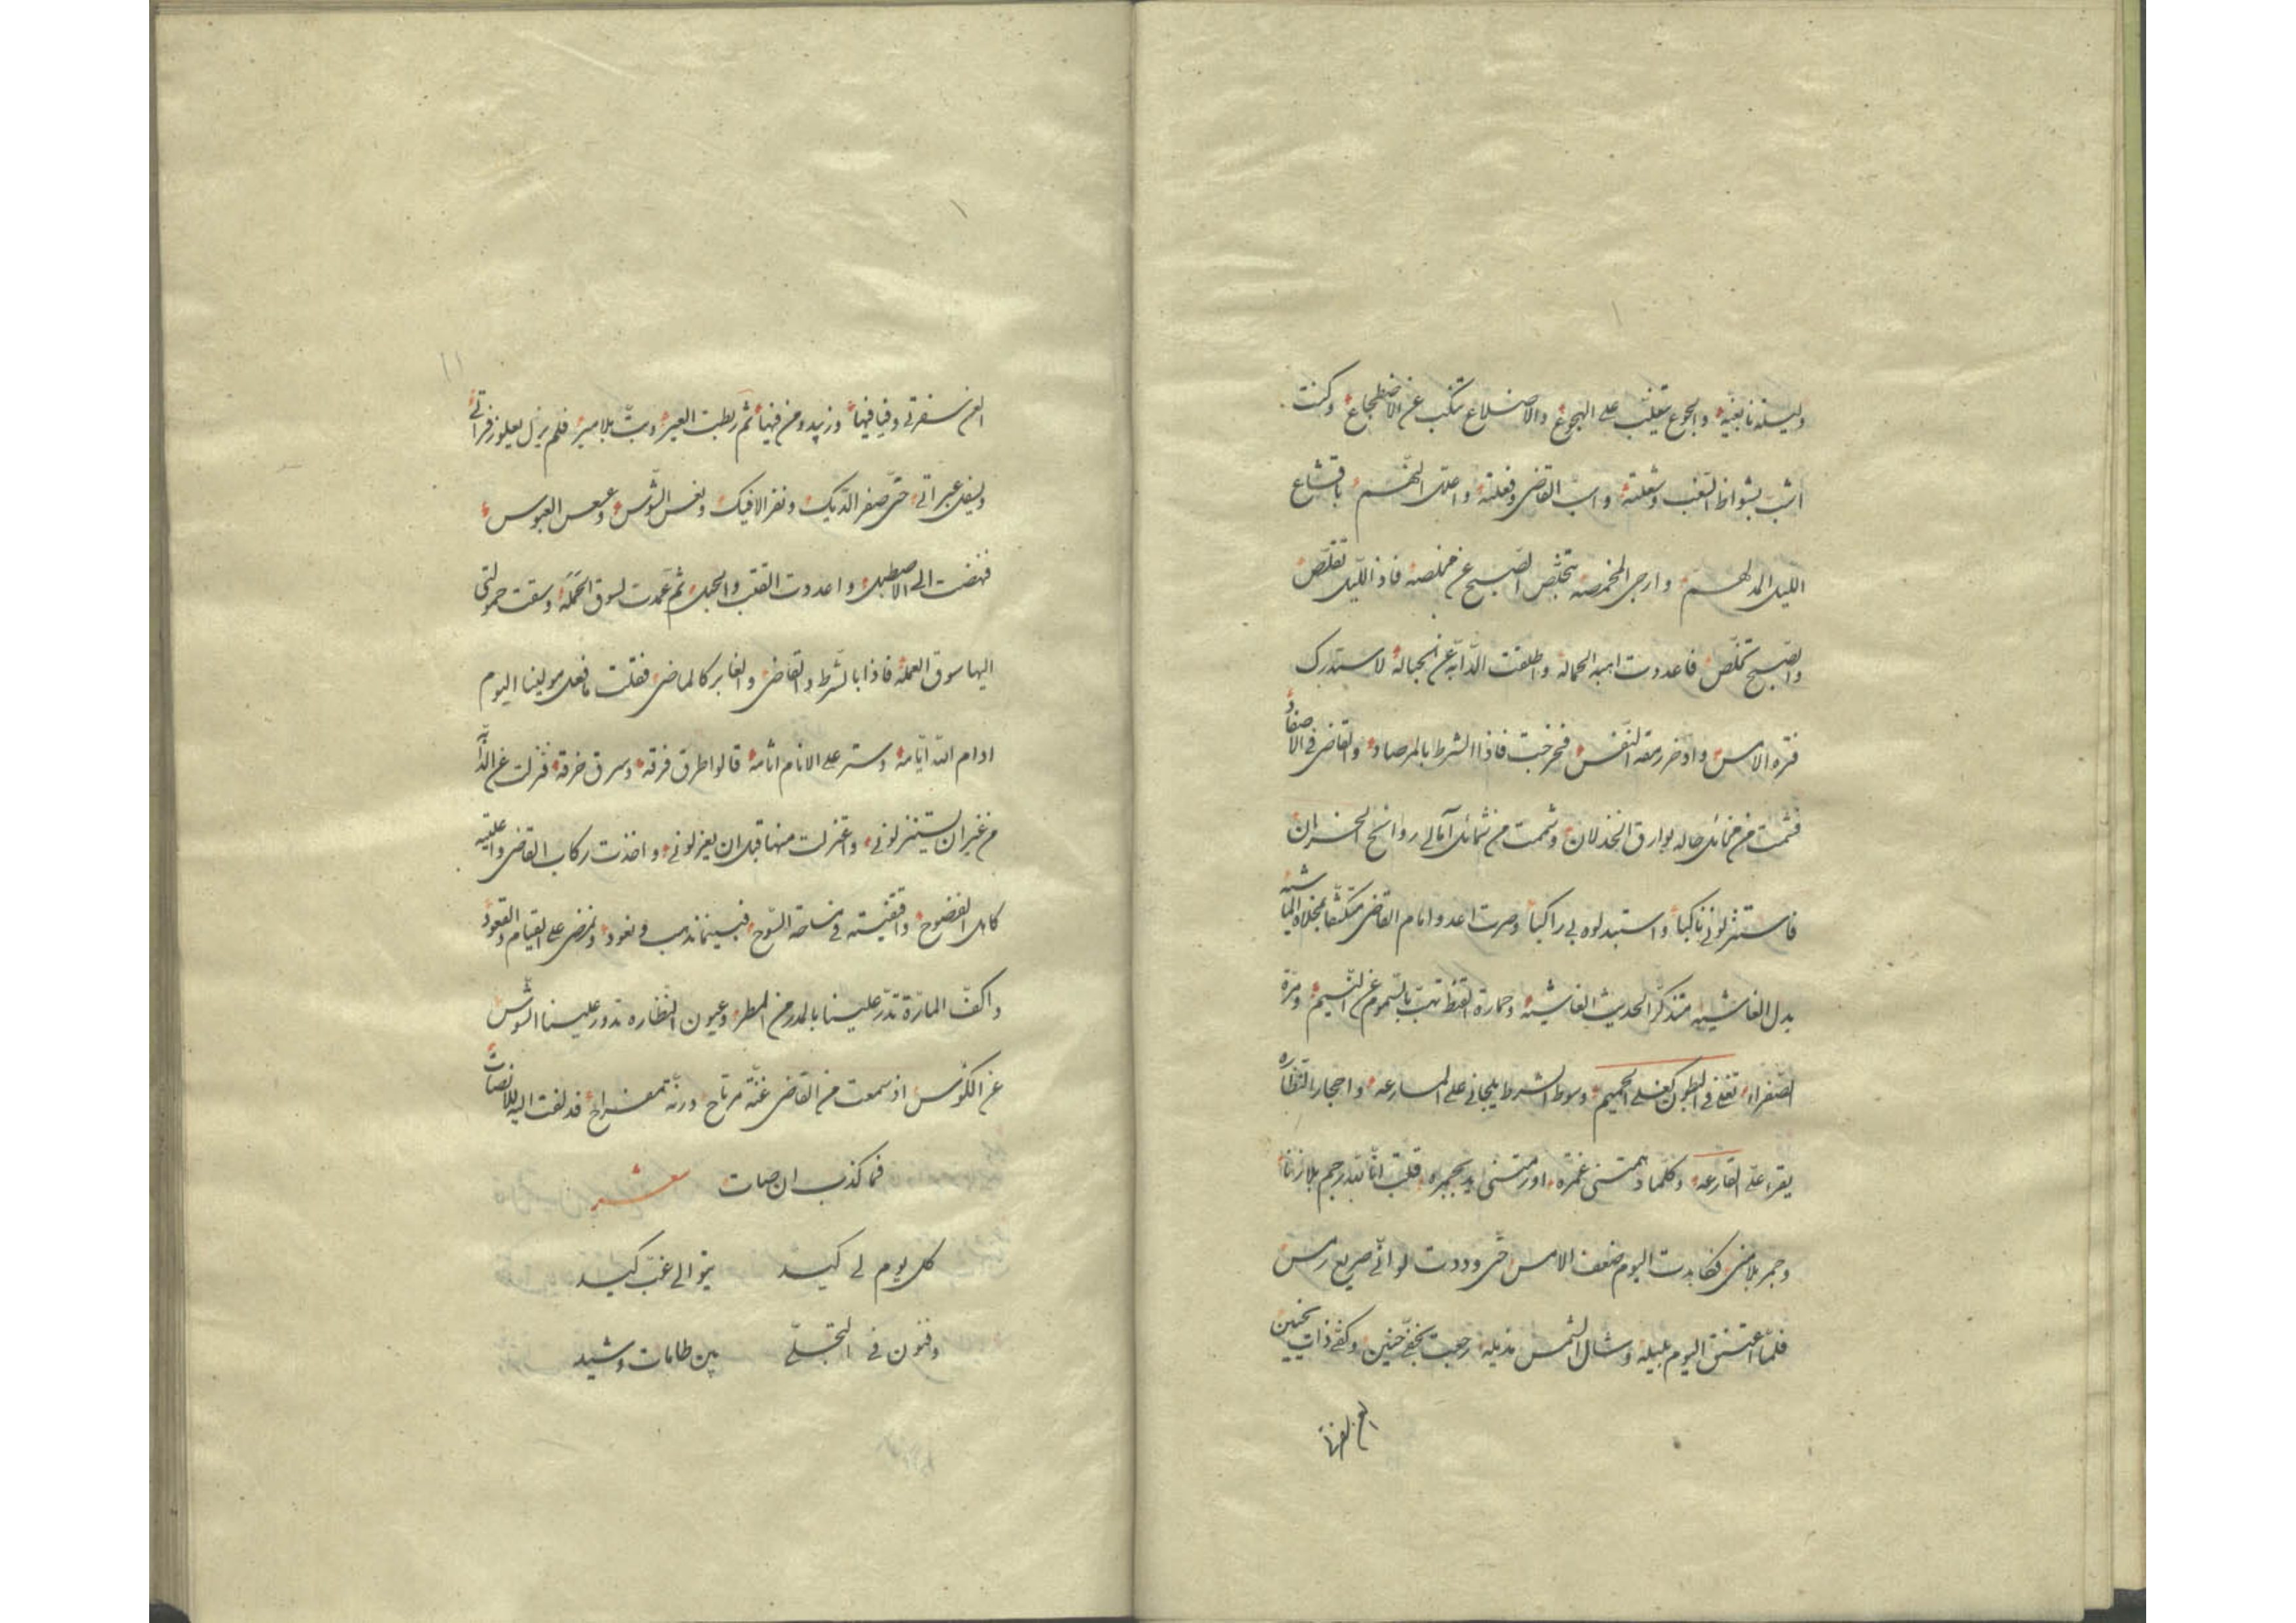 وليلة نابغية والجوع يتغلب على الهجوع والاضلاع تنكب عن الاضطجاع وكنت
اشب بشواظ التعب وشعلته واسب القاضي وفعلته واعلل الهم باقشاع
الليل المدلهم وارجي المخمصة بتخلص الصبح عن مخلصه فاذ الليل تقلص
والصبح تملص فاعددت اهبة الحمالة واطلقت الدابة عن الحبالة لاستدرك
فترة الامس وادخر رمقة النفس فخرجت فاذا الشرط بالمرصاد والقاضي في الاصفاد
فشمت من مخائل حاله بوارق الخذلان وشممت من شمائل آمالي روائح الخسران
فاستنزلوني ناكبا واستبدلوه بي راكبا وصرت اعدو امام القاضي متكشفا بمخلاة الماشية
بدل الغاشية متذكرا لحديث الغاشية وحمارة القيظ تهب بالسموم عن النسيم ومرة
الصفراء تغلي في البطون كغلي الحميم وسوط الشرط يلجاني على المسارعة واحجار النظارة
يقرء علي القارعة وكلما دهمتني غمرة او رمتني يد بجمرة قلت انا لله رجم بلا زنا
وجمر بلا منى فكابدت اليوم ضعف الامس حتى وددت لو اني صريع رمس
فلما اعتنق اليوم بليله وشال الشمس بذيله رجعت بخفي حنين وكفي ذات نحيين
العن سفرتي
العن سفرتي وفيافيها وزبيد ومن فيها ثم ربطت العير وبت بلا مير فلم يزل يعلو زفراتي
ويسفل عبراتي حتى صفر الديك ونفر الافيك ونعس الشوس وعسعس العبوس
فنهضت الى الاصطبل واعددت القتب والحبل ثم عمدت لسوق الحملة وسقت حمولتي
اليها سوق العملة فاذا بالشرط والقاضي والغابر كالماضي فقلت ما فعل مولينا اليوم
ادام الله ايامه وستر على الانام اثامه قالوا طرق فرقة وسرق خرقة فنزلت عن الدابة
من غير ان يستنزلوني واعتزلت منها قبل ان يعزلوني واخذت ركاب القاضي واعليته
كاهل الفضوح واقفيته في ساحة السوح فبينما نذهب ونعود ونمضي على القيام والقعود
واكف المارة تدر علينا بالمدر من المطر وعيون النظارة تدور علينا الشوس
عن الكؤس اذ سمعت من القاضي غنة مرتاح ورنة مفراح فدلفت اليه للانصات
فما كذب ان صات شعر
كل يوم لي كيد يتوالى غب كيد
وفنون في التجلي بين طامات وشيد